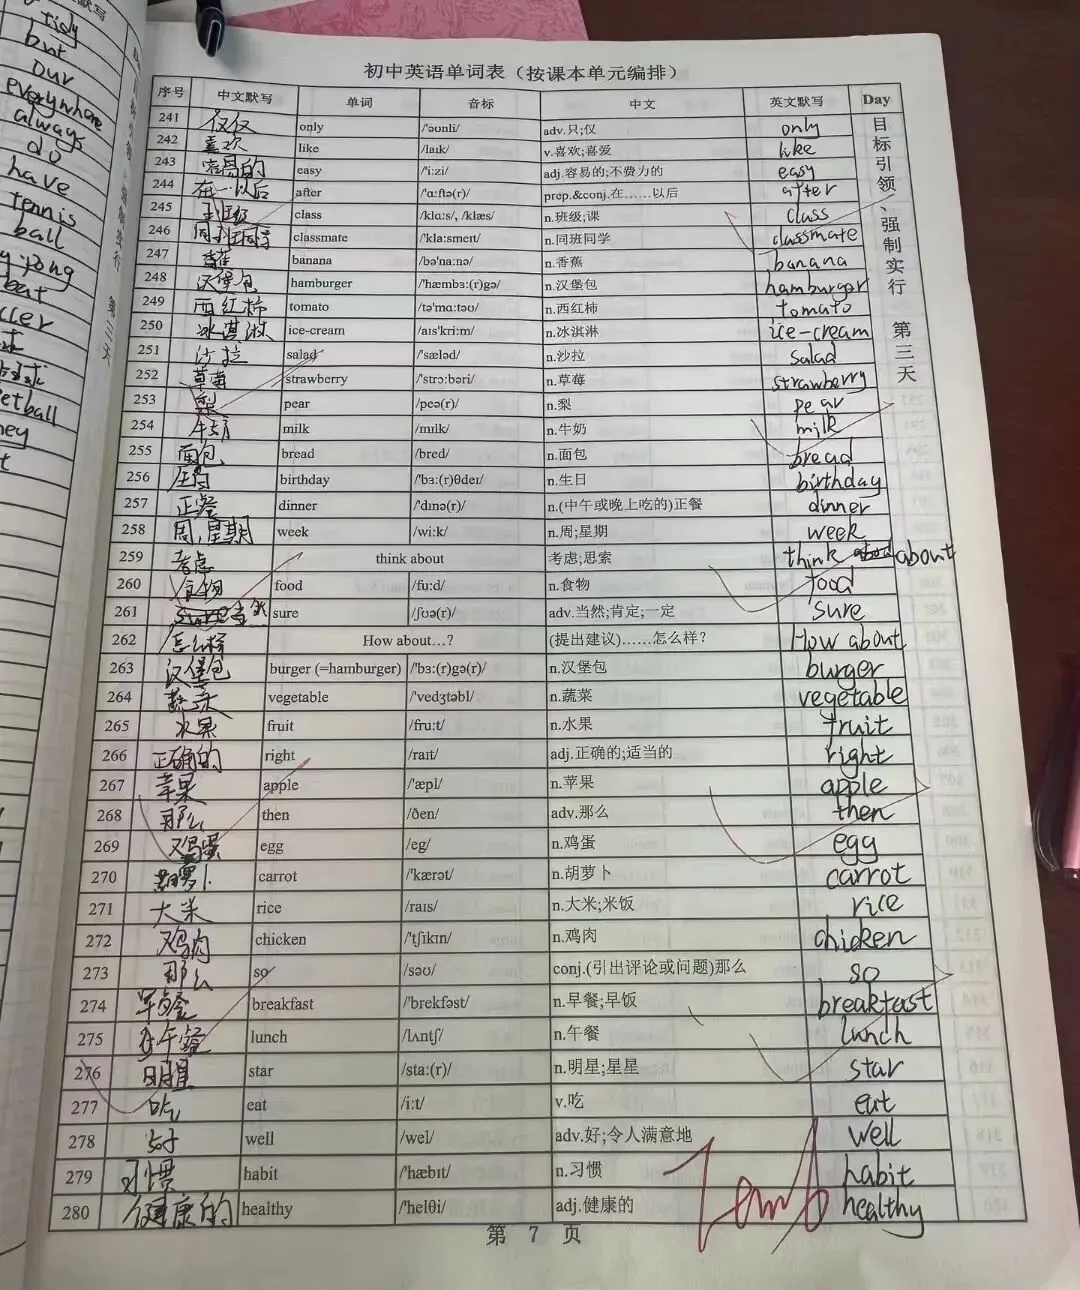 tidy
but
our
everywhere
always
do
have
tennis
ball
but
初中英语单词表（按课本单元编排）
序号 中文默写 单词 音标 中文 英文默写 Day
目标引领、强制实行 第三天
241 仅仅 only /'əʊnli/ adv.只;仅 only
242 喜欢 like /laɪk/ v.喜欢;喜爱 like
243 容易的 easy /'i:zi/ adj.容易的;不费力的 easy
244 在…以后 after /'ɑ:ftə(r)/ prep.&conj.在……以后 after
245 班级 class /klɑ:s/, /klæs/ n.班级;课 class
246 同班同学 classmate /'kla:smeɪt/ n.同班同学 classmate
247 香蕉 banana /bə'na:nə/ n.香蕉 banana
248 汉堡包 hamburger /'hæmbɜ:(r)gə/ n.汉堡包 hamburger
249 西红柿 tomato /tə'mɑ:təʊ/ n.西红柿 tomato
250 冰淇淋 ice-cream /aɪs'kri:m/ n.冰淇淋 ice-cream
251 沙拉 salad /'sæləd/ n.沙拉 salad
252 草莓 strawberry /'strɔ:bəri/ n.草莓 strawberry
253 梨 pear /peə(r)/ n.梨 pear
254 牛奶 milk /mɪlk/ n.牛奶 milk
255 面包 bread /bred/ n.面包 bread
256 生日 birthday /'bɜ:(r)θdeɪ/ n.生日 birthday
257 正餐 dinner /'dɪnə(r)/ n.(中午或晚上吃的)正餐 dinner
258 周,星期 week /wi:k/ n.周;星期 week
259 考虑 think about 考虑;思索 think about
260 食物 food /fu:d/ n.食物 food
261 sure /ʃʊə(r)/ adv.当然;肯定;一定 sure
262 怎么样 How about…? (提出建议)……怎么样? How about
263 汉堡包 burger (=hamburger) /'bɜ:(r)gə(r)/ n.汉堡包 burger
264 蔬菜 vegetable /'vedʒtəbl/ n.蔬菜 vegetable
265 水果 fruit /fru:t/ n.水果 fruit
266 正确的 right /raɪt/ adj.正确的;适当的 right
267 苹果 apple /'æpl/ n.苹果 apple
268 那么 then /ðen/ adv.那么 then
269 鸡蛋 egg /eg/ n.鸡蛋 egg
270 胡萝卜 carrot /'kærət/ n.胡萝卜 carrot
271 大米 rice /raɪs/ n.大米;米饭 rice
272 鸡肉 chicken /'tʃɪkɪn/ n.鸡肉 chicken
273 那么 so /səʊ/ conj.(引出评论或问题)那么 so
274 早餐 breakfast /'brekfəst/ n.早餐;早饭 breakfast
275 午餐 lunch /lʌntʃ/ n.午餐 lunch
276 明星 star /sta:(r)/ n.明星;星星 star
277 吃 eat /i:t/ v.吃 eat
278 好 well /wel/ adv.好;令人满意地 well
279 习惯 habit /'hæbɪt/ n.习惯 habit
280 健康的 healthy /'helθi/ adj.健康的 healthy
第 7 页